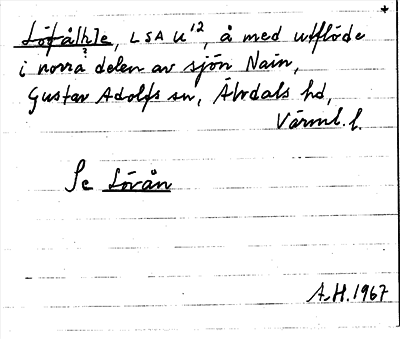 Löfål[h]e, LSA U¹², å med utflöde
?
i norra delen av sjön Nain,
Gustav Adolfs sn, Älvdals hd,
Värml. l.
Se Lövån
A.H. 1967